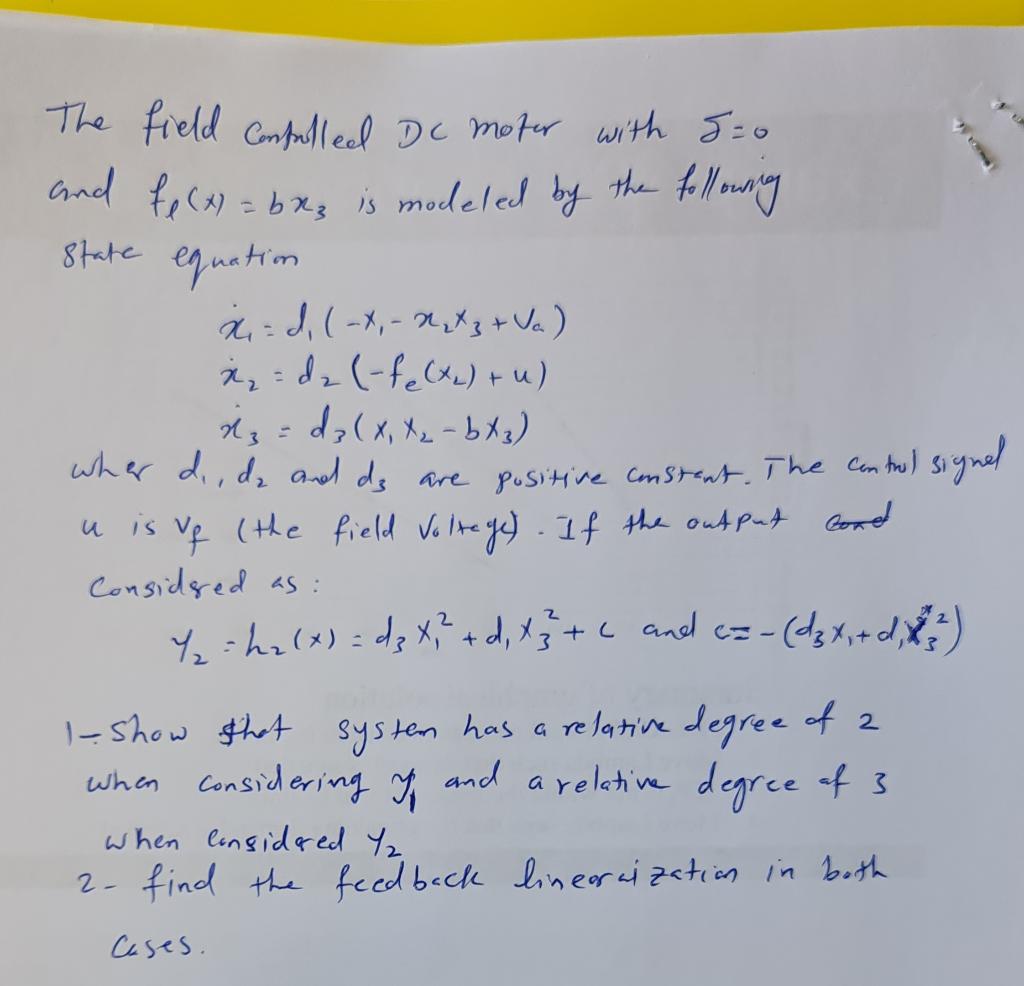 The field Controlled DC motor with δ=0
and fℓ(x) = bx₃ is modeled by the following
State equation
ẋ₁ = d₁(-x₁ - x₂x₃ + Va)
ẋ₂ = d₂(-fe(x₂) + u)
ẋ₃ = d₃(x₁x₂ - bx₃)
wher d₁, d₂ and d₃ are positive constant. The control signal
u is Vf (the field Voltage). If the output
Considered as :
Y₂ = h₂(x) = d₃x₁² + d₁x₃² + c and c = -(d₃x₁ + d₁x₃²)
1- Show that system has a relative degree of 2
when considering y₁ and a relative degree of 3
when Considered Y₂
2- find the feedback linearization in both
Cases.